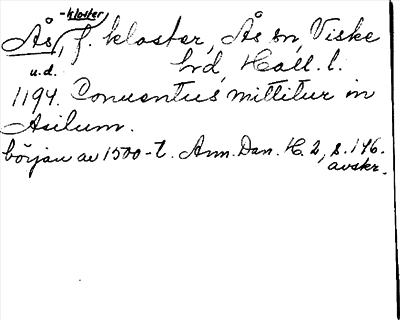 -kloster
Ås, f. kloster, Ås sn, Viske
hd, Hall. l.
u.d.
1194. Conuentus mittitur in
Asilum.
början av 1500-t. Ann. Dan. H. 2, s. 176.
avskr.